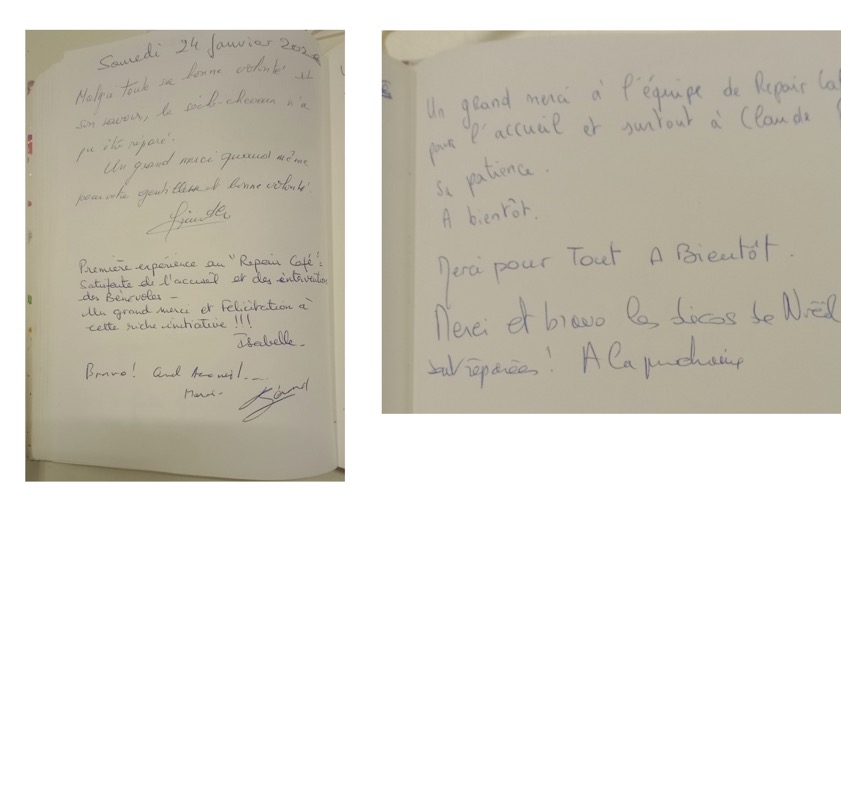 Samedi 24 Janvier
Malgré toute sa bonne volonté et
son savoir, le sèch-cheveux n'a
pu être réparé.
Un grand merci quand même
pour votre gentillesse et bonne volonté.
Première expérience au "Repair Café":
Satisfaite de l'accueil et des intervention
des Bénévoles -
Un grand merci et Félicitation à
cette riche initiative !!!
Isabelle.
Bravo !
Merci -
Un grand merci à l'équipe de Repair Ca
pour l'accueil et surtout à Claude
sa patience.
A bientôt.
Merci pour Tout A Bientôt.
Merci et bravo les décos de Noël
sont réparées ! A la prochaine